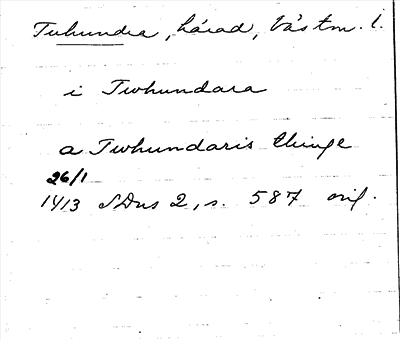 Tuhundra, härad, Västm. l.
i Twhundara
a Twhundaris thinge
26/1
1413 SDns 2, s. 587 orig.